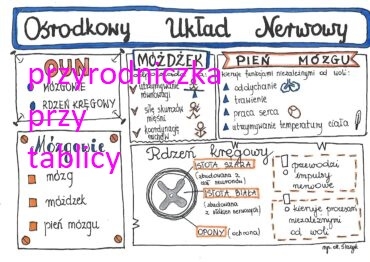 Ośrodkowy Układ Nerwowy
OUN
MÓZGOWIE
RDZEŃ KRĘGOWY
MÓŻDŻEK
utrzymywanie równowagi
siłę skurczów mięśni
koordynację ruchów
PIEŃ MÓZGU
kieruje funkcjami niezależnymi od woli:
oddychanie
trawienie
praca serca
utrzymywanie temperatury ciała
przyrodniczka
przy
tablicy
Mózgowie
mózg
móżdżek
pień mózgu
Rdzeń kręgowy
ISTOTA SZARA
(zbudowana z ciał neuronów)
ISTOTA BIAŁA
(zbudowana z włókien nerwowych)
OPONY (ochrona)
przewodzi
impulsy
nerwowe
kieruje procesami
niezależnymi
od woli